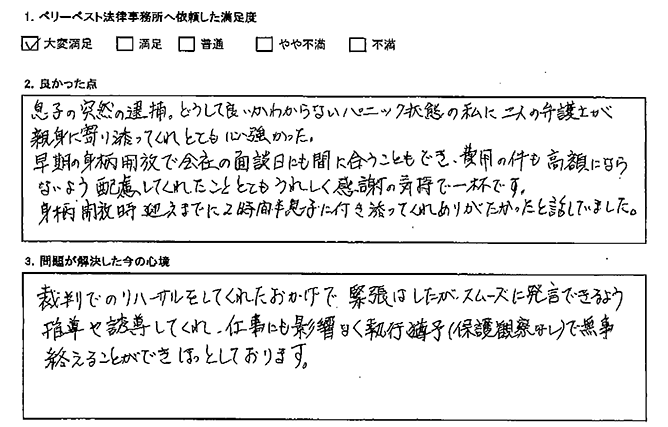 1. ベリーベスト法律事務所へ依頼した満足度
☑大変満足 □満足 □普通 □やや不満 □不満
2. 良かった点
息子の突然の逮捕。どうして良いかわからないパニック状態の私に二人の弁護士が
親身に寄り添ってくれとても心強かった。
早期の身柄開放で会社の面談日にも間に合うこともでき、費用の件も高額になら
ないよう配慮してくれたこととてもうれしく感謝の気持で一杯です。
身柄開放時迎えまでに2時間半息子に付き添ってくれありがたかったと話していました。
3. 問題が解決した今の心境
裁判でのリハーサルをしてくれたおかげで緊張はしたが、スムーズに発言できるよう
指導や誘導してくれ、仕事にも影響なく執行猶予(保護観察なし)で無事
終えることができほっとしております。